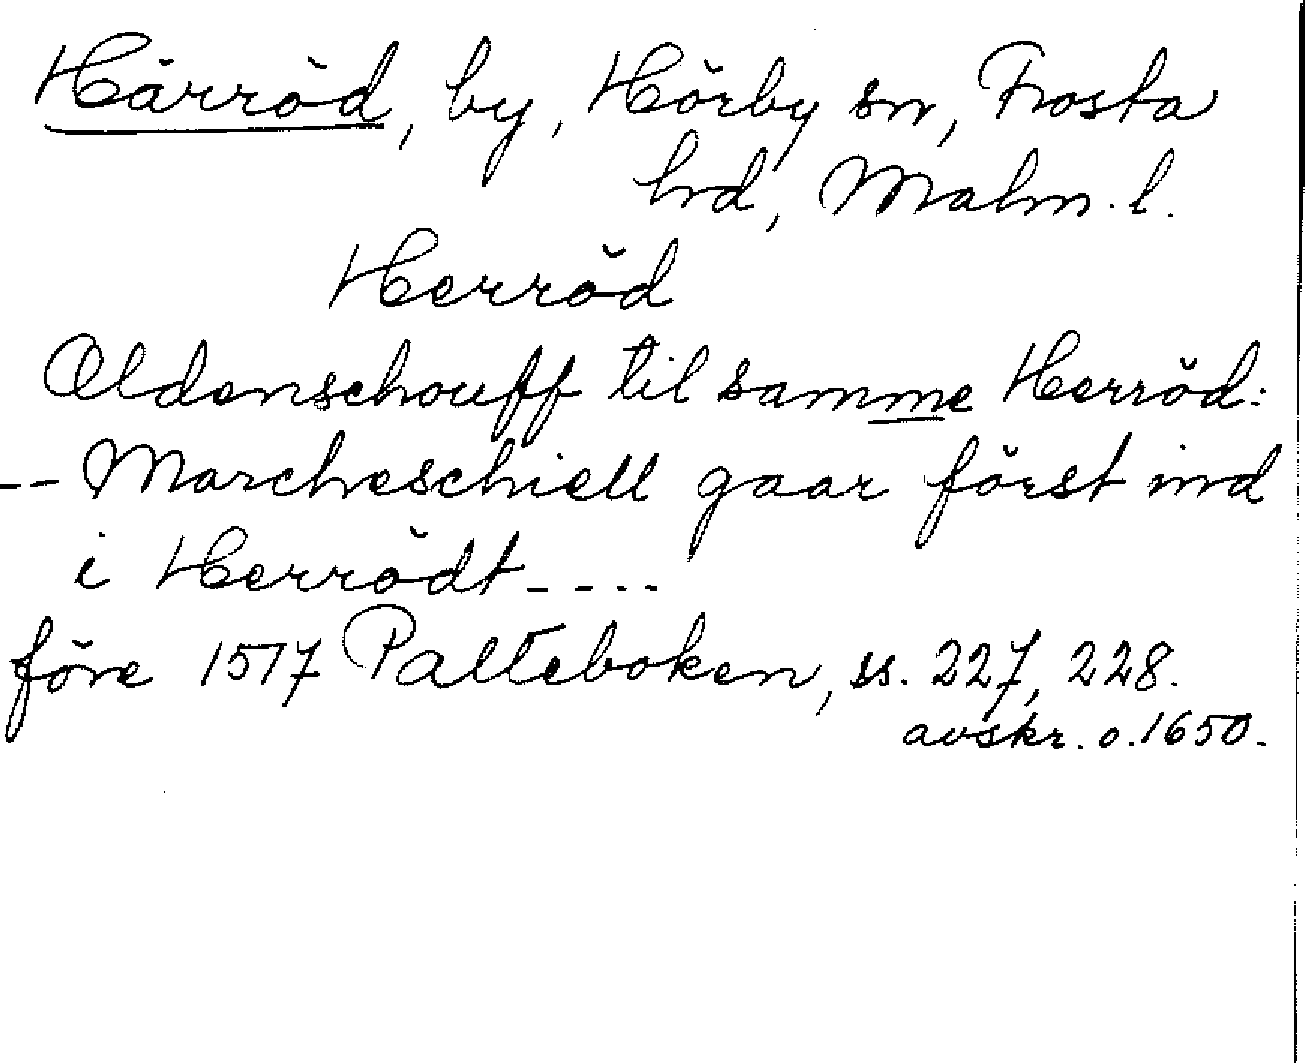 Härröd, by, Hörby sn, Frosta
hd, Malm. l.
Herröd
Oldenschouff til samme Herröd:
-- Marcheschiell gaar först ind
i Herrödt - - - -
före 1517 Palteboken, ss. 227, 228.
avskr. o. 1650.